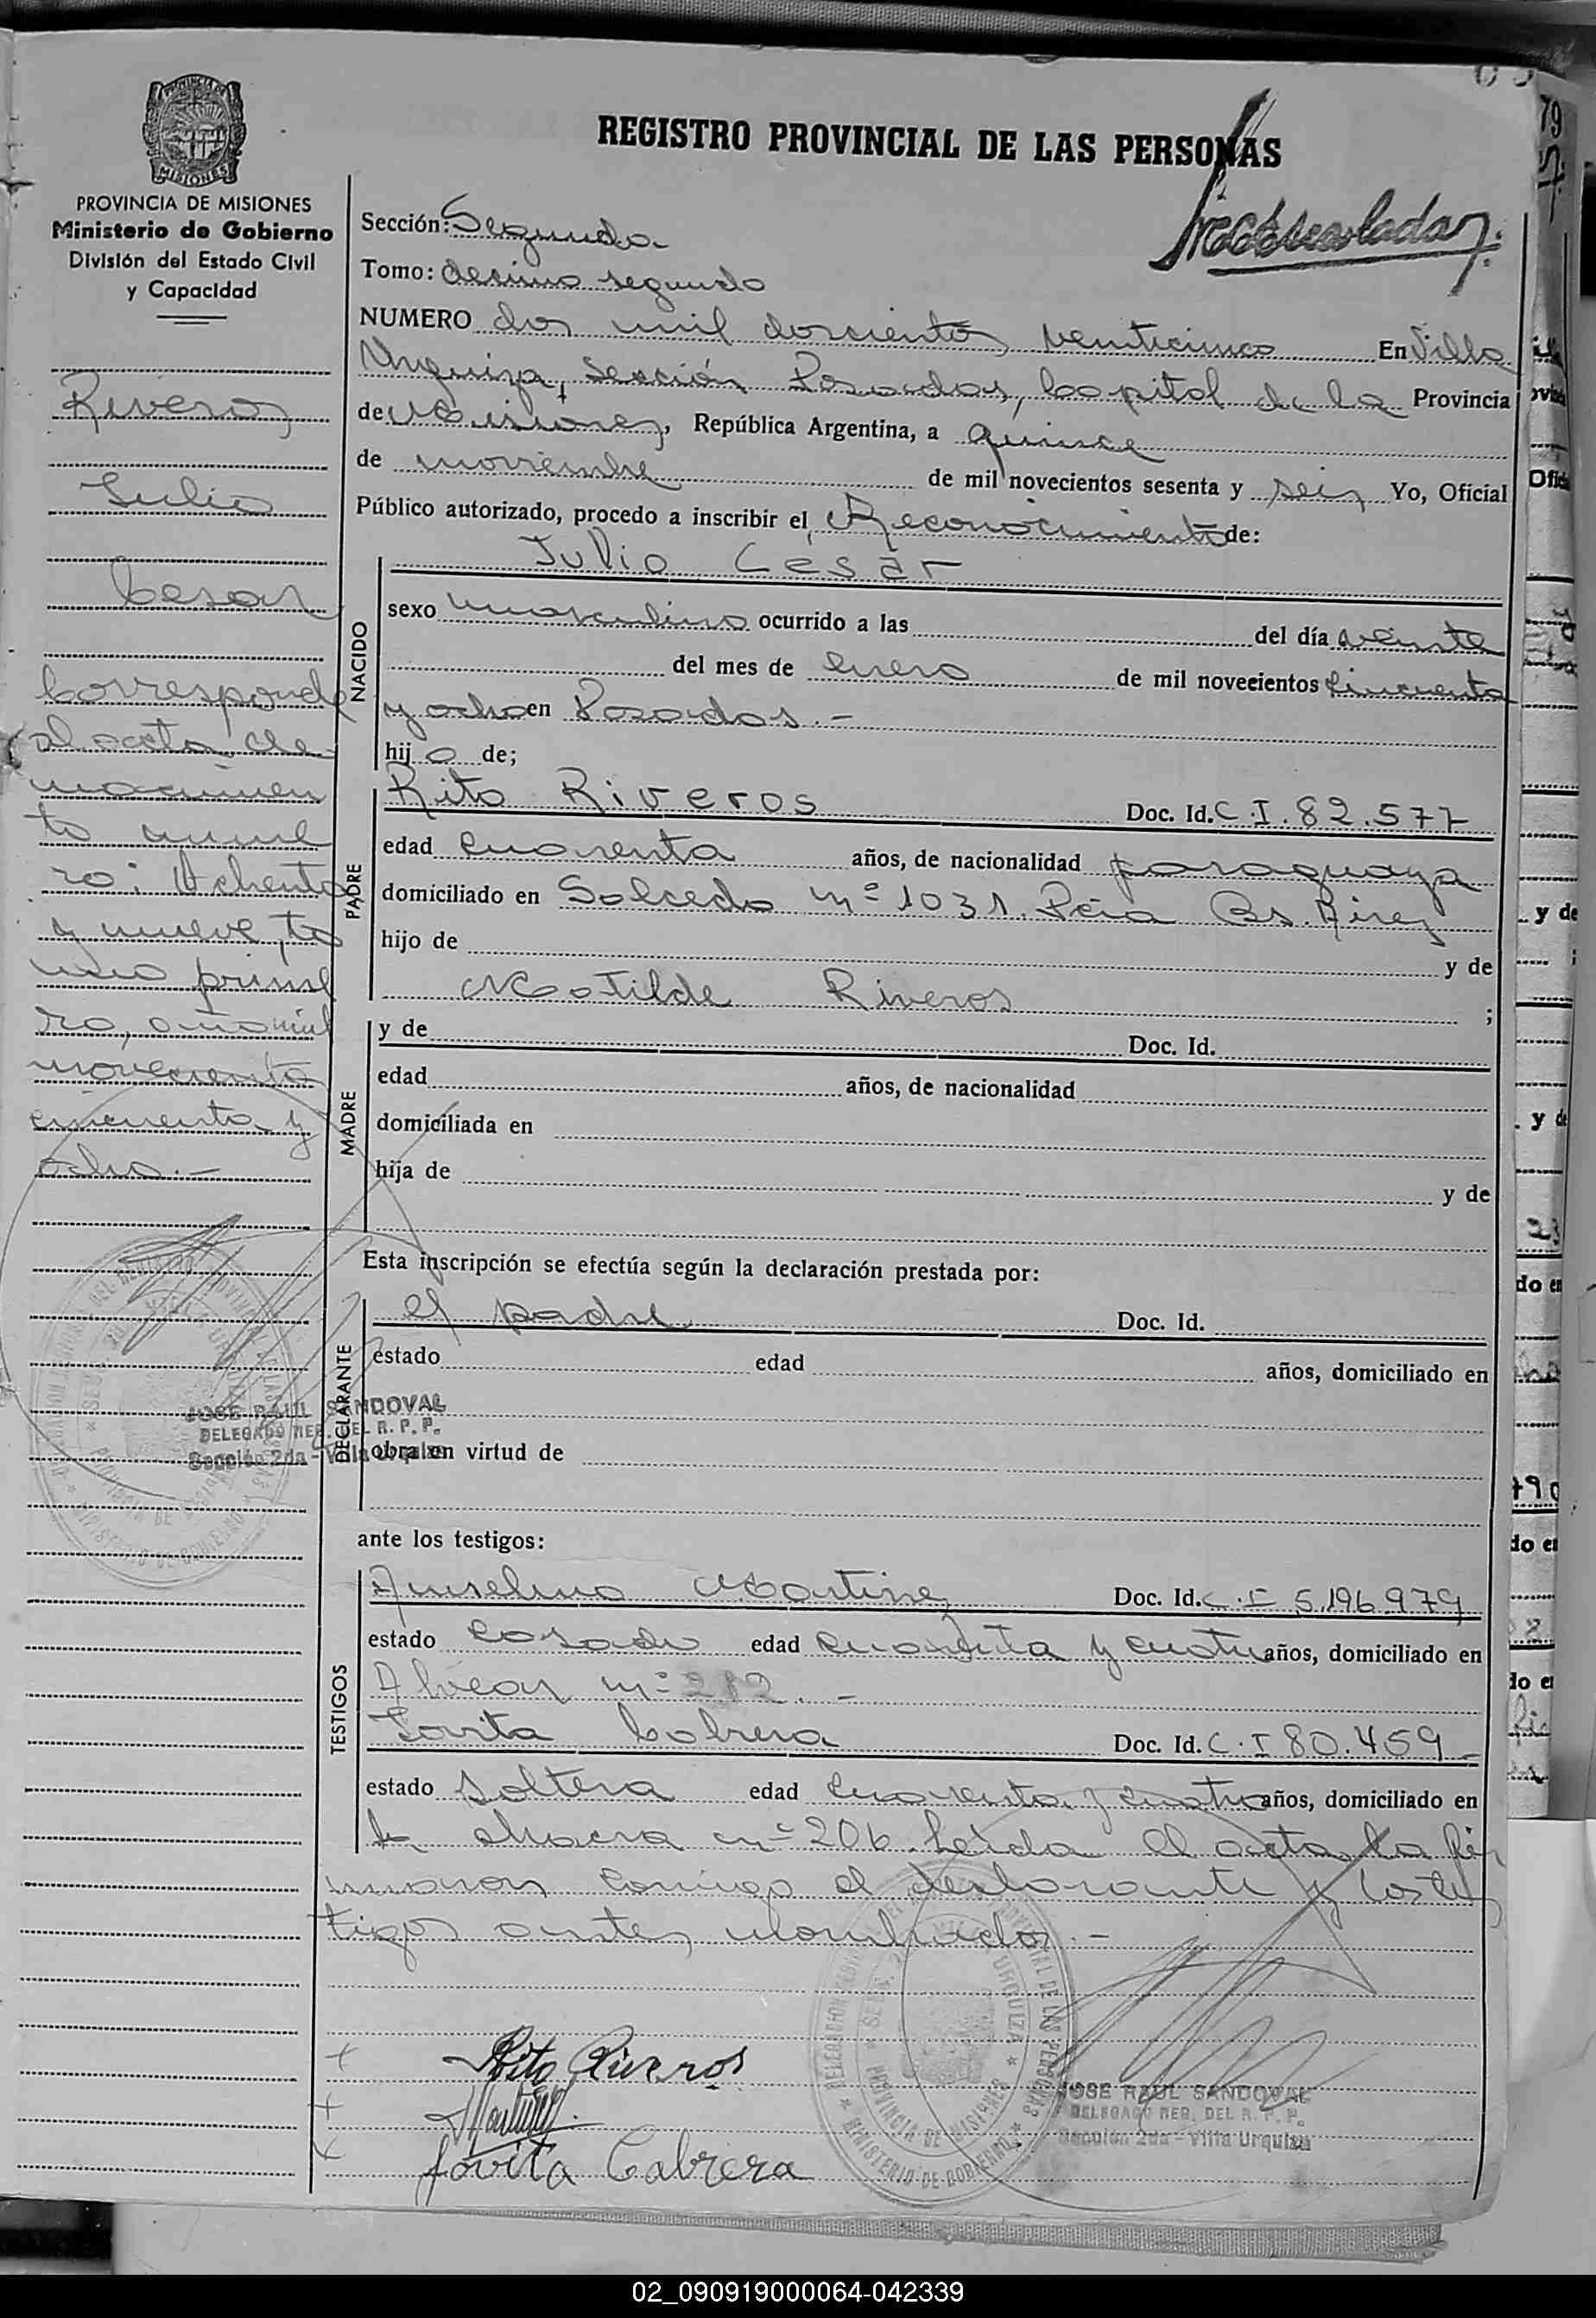 REGISTRO PROVINCIAL DE LAS PERSONAS
PROVINCIA DE MISIONES
Ministerio de Gobierno
División del Estado Civil
y Capacidad
Riveros
Julio
Cesar
Corresponde
al acta de
nacimien
to nume
ro: Ochenta
y nueve, to
mo prime
ro, año mil
novecientos
cincuenta y
ocho.-
JOSE RAUL SANDOVAL
DELEGADO REG. DEL R. P. P.
Sección 2da - Villa Urquiza
Sección: Segunda
Tomo: decimo segundo
NUMERO dos mil doscientos veinticinco En Villa
Urquiza, Sección Posadas, Capital de la Provincia
de Misiones, República Argentina, a quince
de noviembre de mil novecientos sesenta y seis Yo, Oficial
Público autorizado, procedo a inscribir el Reconocimiento de:
NACIDO
Julio Cesar
sexo masculino ocurrido a las del día veinte
del mes de enero de mil novecientos cincuenta
y ocho en Posadas.-
hijo de;
PADRE
Rito Riveros Doc. Id. C.I. 82.577
edad cuarenta años, de nacionalidad paraguaya
domiciliado en Salcedo nº 1031. Bs. Aires
hijo de y de
Matilde Riveros ;
MADRE
y de Doc. Id.
edad años, de nacionalidad
domiciliada en
hija de y de
Esta inscripción se efectúa según la declaración prestada por:
DECLARANTE
el padre Doc. Id.
estado edad años, domiciliado en
obra en virtud de
ante los testigos:
TESTIGOS
Anselmo Martinez Doc. Id. C.I 5.196.979
estado casado edad cuarenta y cuatro años, domiciliado en
Alvear nº 282.-
Jovita Cabrera Doc. Id. C.I 80.459-
estado soltera edad cuarenta y cuatro años, domiciliado en
la chacra nº 206. Leida el acta la fir
maron conmigo el declarante y los tes
tigos antes nombrados.-
Rito Riveros
Jovita Cabrera
JOSE RAUL SANDOVAL
DELEGADO REG. DEL R. P. P.
Sección 2da - Villa Urquiza
02_090919000064-042339